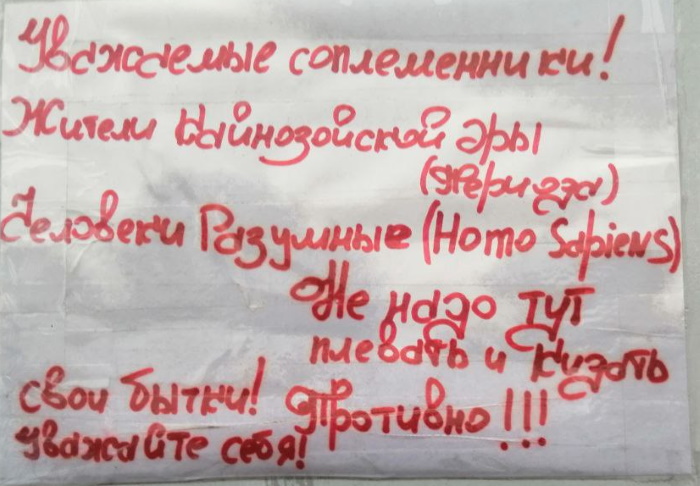 Уважаемые соплеменники!
Жители Кайнозойской эры
(Периода)
Человеки Разумные (Homo Sapiens)
Не надо тут
плевать и кидать
свои бытки! Противно!!!
Уважайте себя!